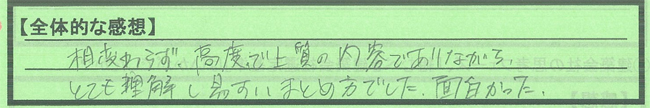 【全体的な感想】
相変わらず、高度で上質の内容でありながら、
とても理解し易すいまとめ方でした。面白かった。